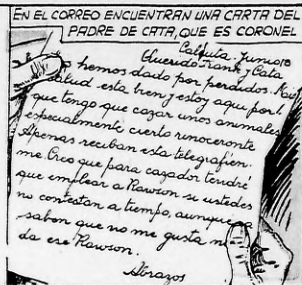 EN EL CORREO ENCUENTRAN UNA CARTA DEL
PADRE DE CATA, QUE ES CORONEL
Calcuta - Junio 18
Querido Frank y Cata
hemos dado por perdidos.
salud esta bien y estoy aqui por
que tengo que cazar unos animales
especialmente cierto rinoceronte
Apenas reciban esta telegrafien
me. Creo que para cazador tendré
que emplear a Rawson si ustedes
no contestan a tiempo, aunque
saben que no me gusta
da ese Rawson.
Abrazos